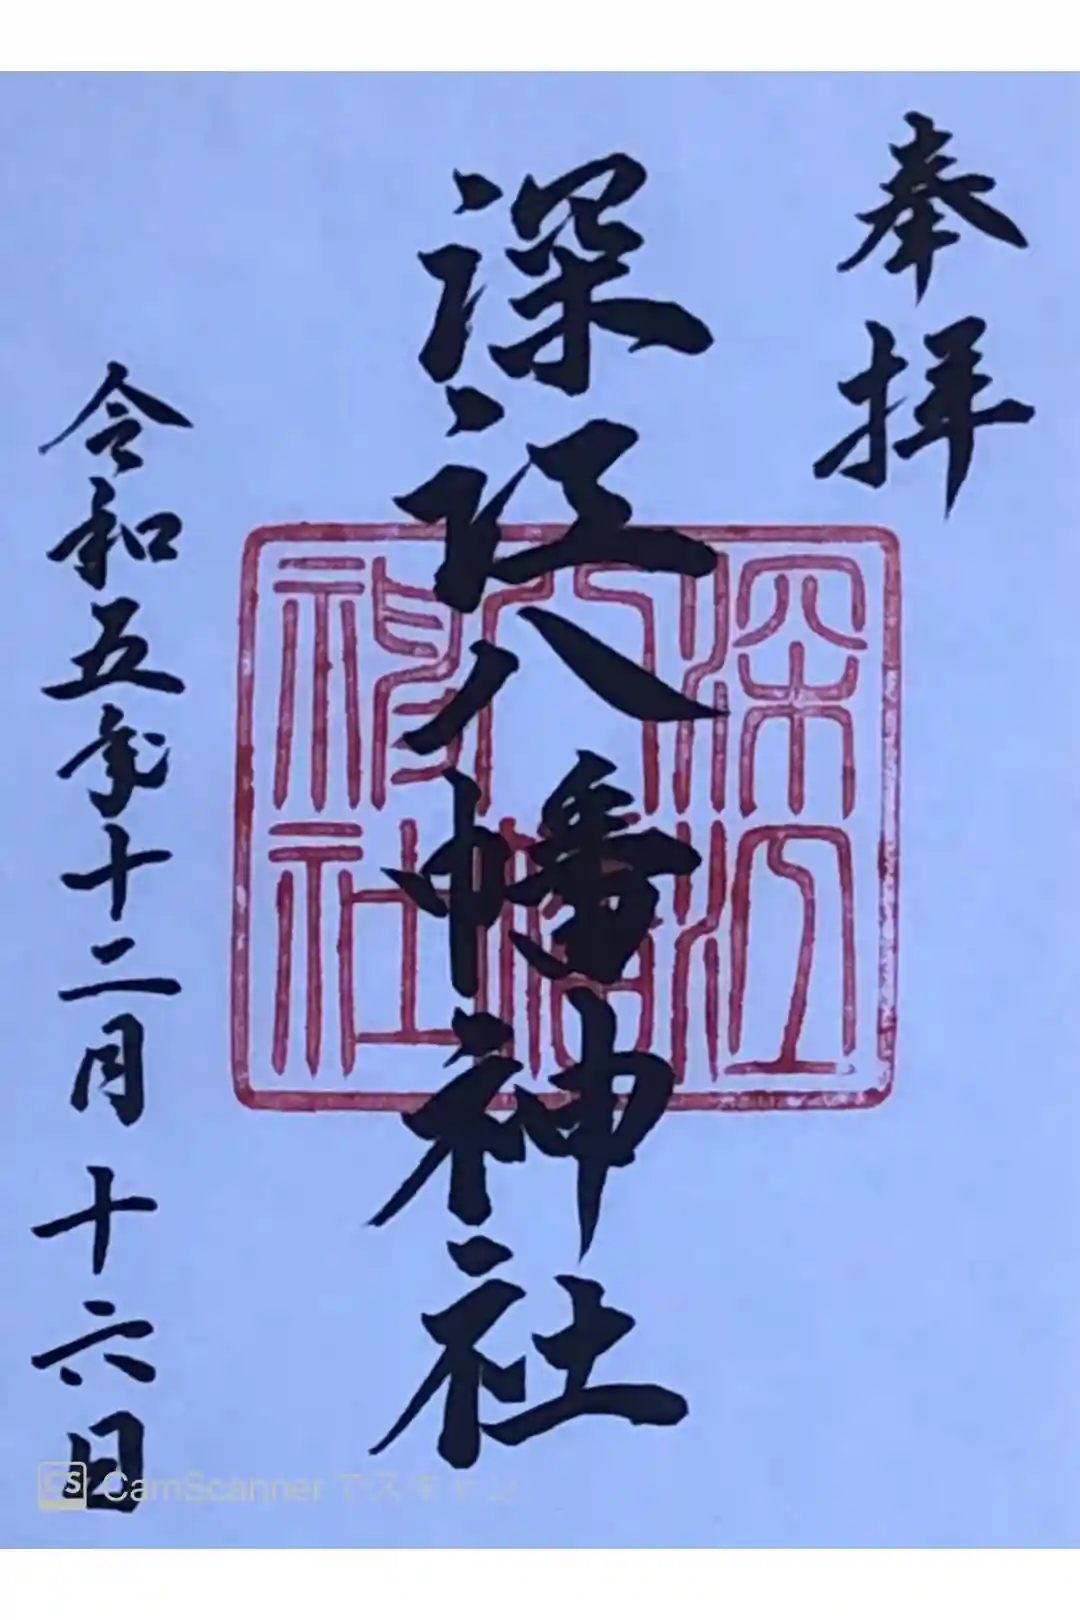 奉拝
深江八幡神社
深江
八幡
神社
令和五年十二月十六日
CS CamScanner でスキャン